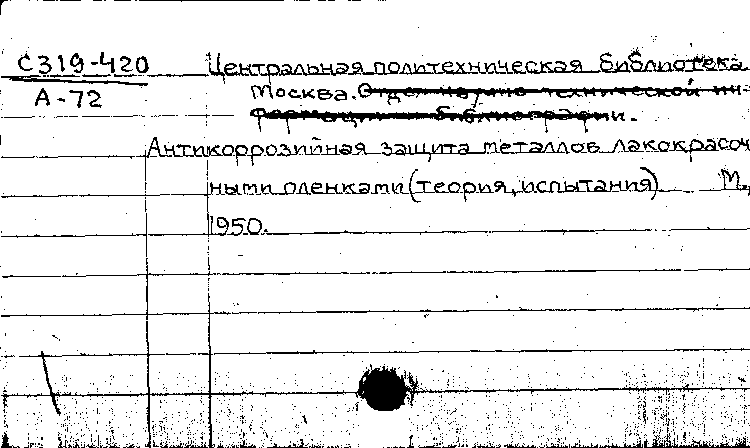 С319-420
Центральная политехническая библиотека
А-72
Москва. Отдел научно-технической ин-
формации и библиографии.
Антикоррозийная защита металлов лакокрасоч
ными пленками (теория, испытания) М.,
1950.